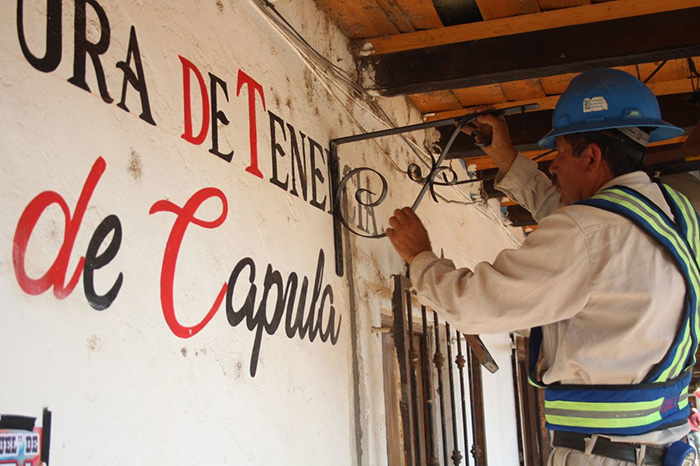 URA DE TENENCIA
de Capula
UEL" DE